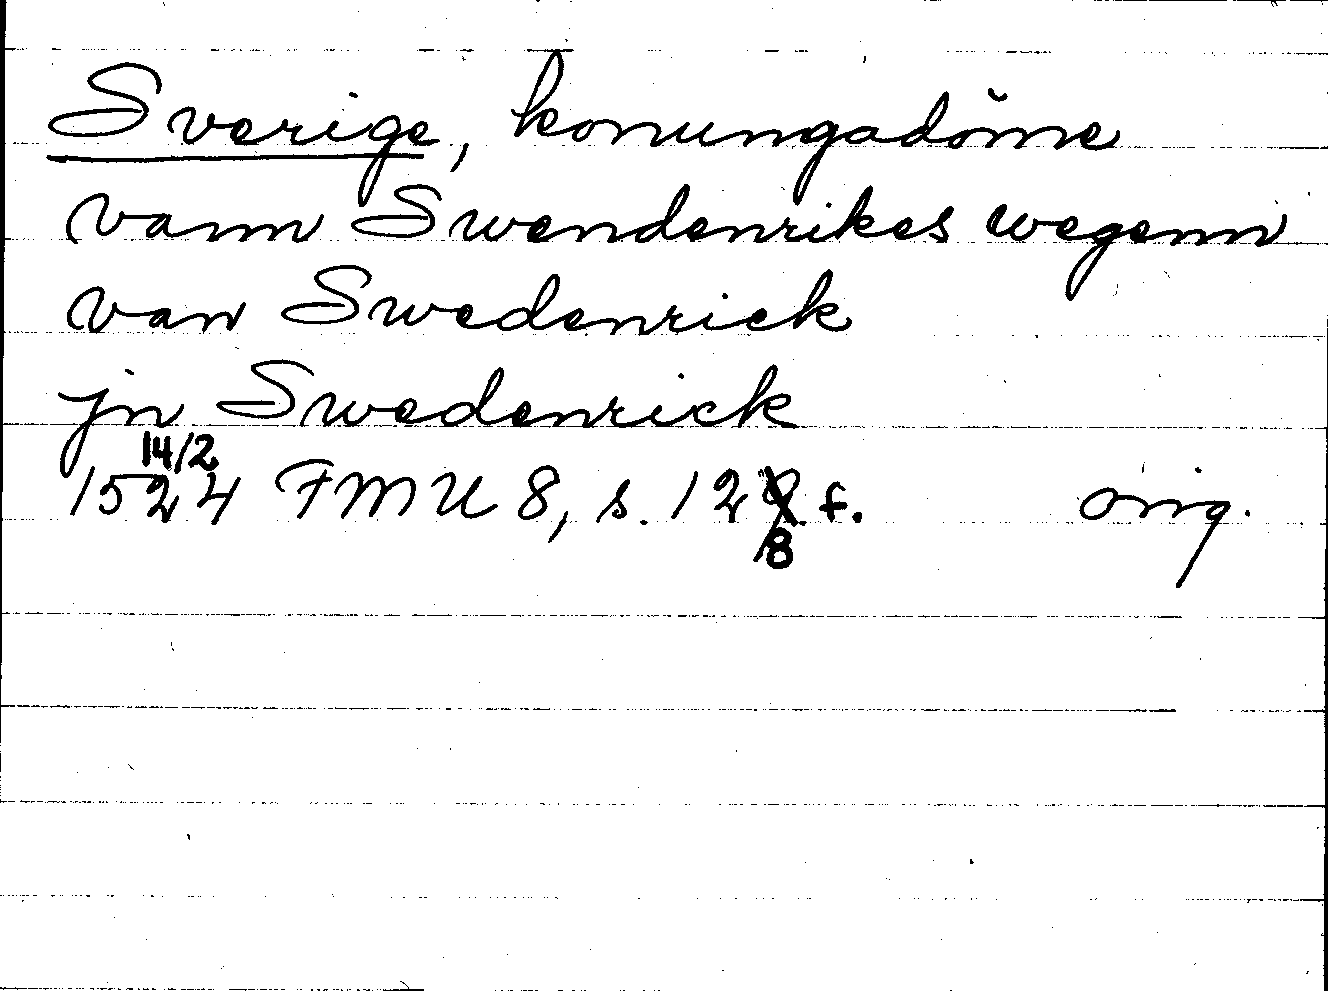 Sverige, konungadöme
vann Swendenrikes wegenn
van Swedenrick
jn Swedenrick
14/2
1524 FMU 8, s. 128 f. orig.